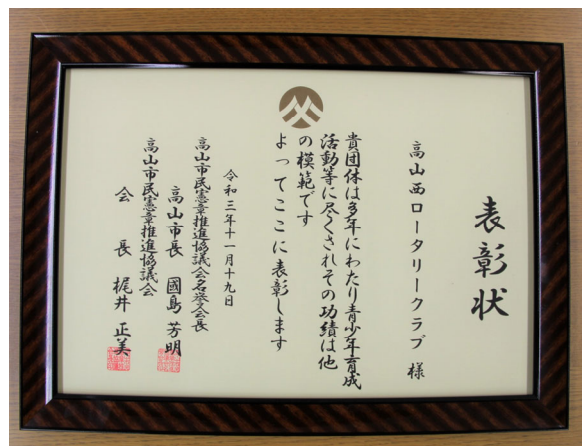 表彰状
高山西ロータリークラブ 様
貴団体は多年にわたり青少年育成
活動等に尽くされその功績は他
の模範です
よってここに表彰します
令和三年十一月十九日
高山市民憲章推進協議会名誉会長
高山市長 國島 芳明
高山市民憲章推進協議会
会長 梶井 正美